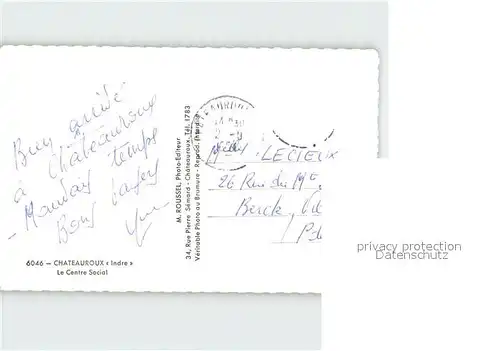 Bien arrivé
à Châteauroux
- Mauvais temps
Bons baisers
6046 — CHATEAUROUX « Indre »
Le Centre Social
M. ROUSSEL, Photo-Editeur
34, Rue Pierre Sémard - Châteauroux. Tél. 1783
Véritable Photo au Bromure - Reprod. Interd.
LECIEUX
26 Rue du
Berck
privacy protection
Datenschutz